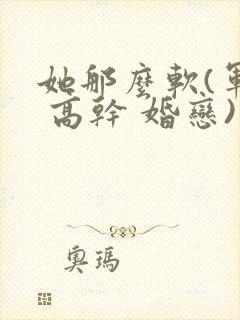 她那麼軟(軍
高幹 婚戀)
奧瑪